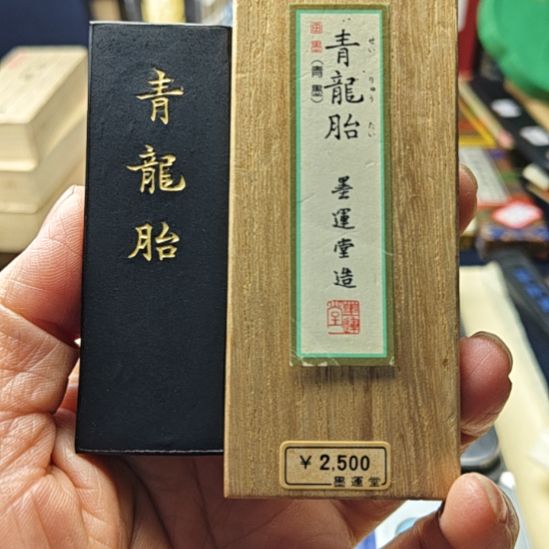 青龍胎
画墨
(青墨)
青龍胎
せい りゅう たい
墨運堂造
墨運堂
¥2,500
墨運堂